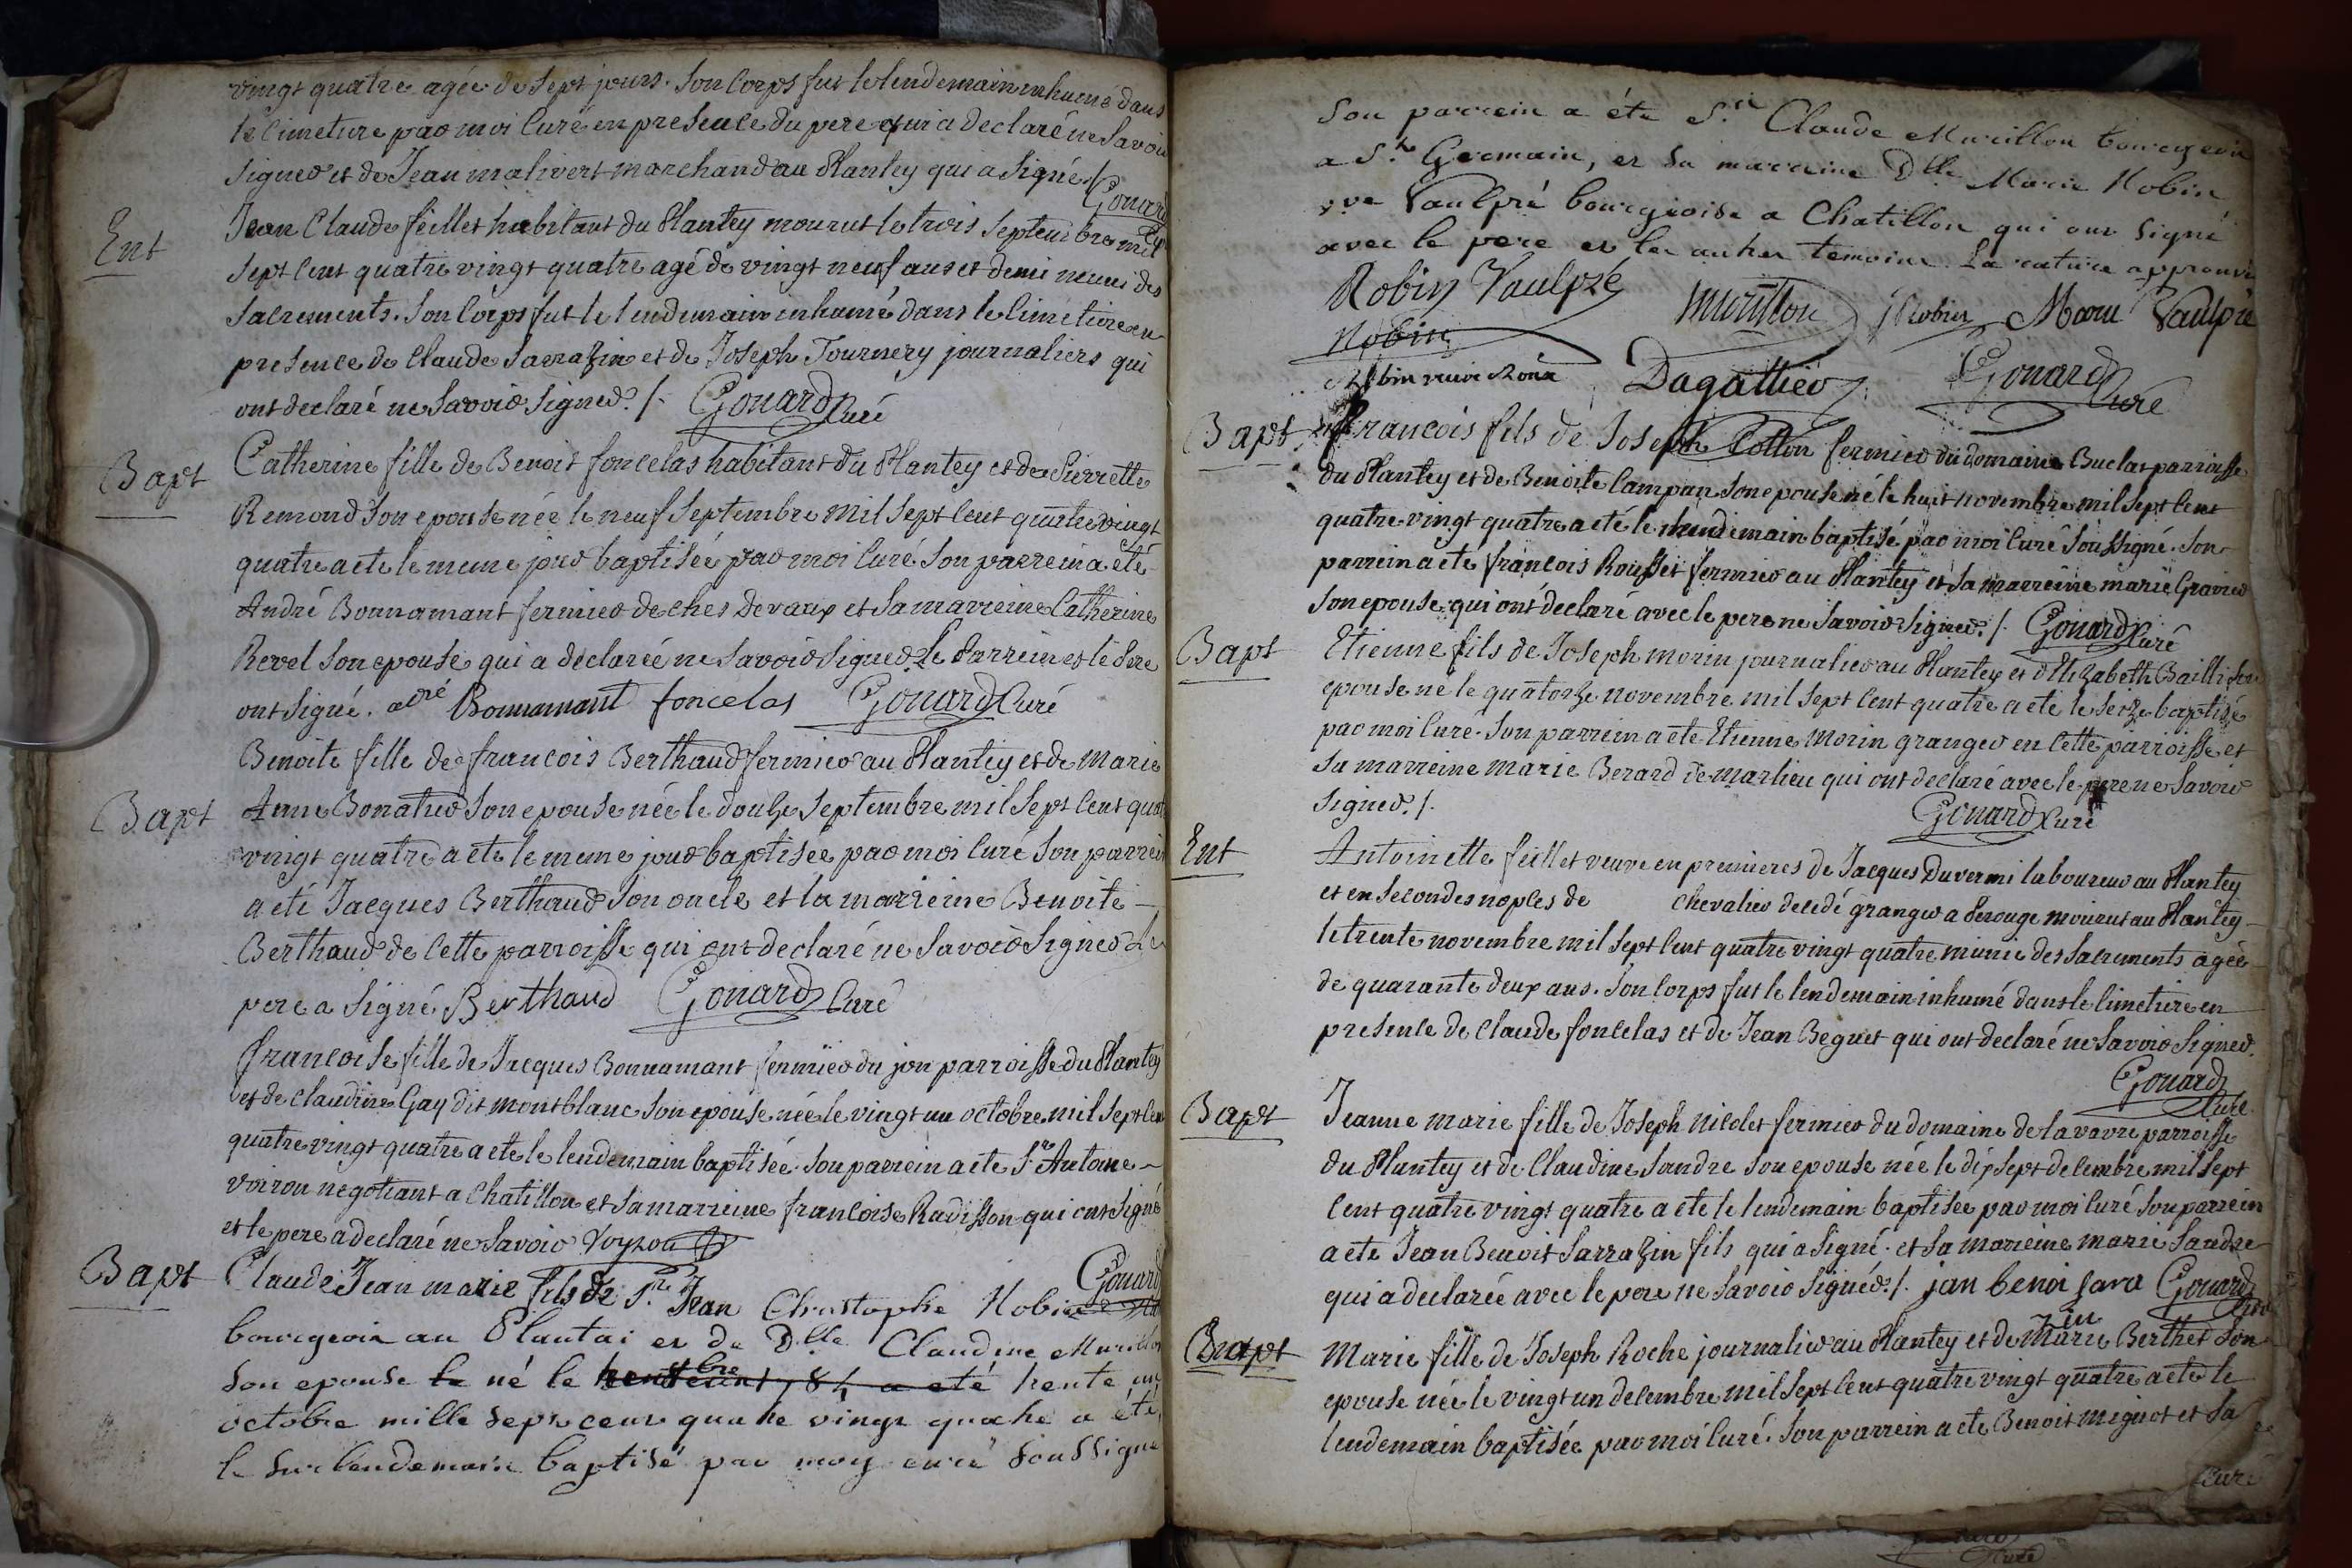 vingt quatre agée de sept jours. Son corps fut le lendemain inhumé dans
le cimeture par moi curé en presence du pere qui a declaré ne savoir
signer et de Jean malivert marchand au Plantey qui a signé /.
Gouard
Ent
Jean Claude feillet habitant du Plantey mourut le trois septembre mil
sept cent quatre vingt quatre agé de vingt neuf ans et demi muni des
sacrements. Son corps fut le lendemain inhumé dans le cimetiere en
presence de Claude Sarrazin et de Joseph Tournery journaliers qui
ont declaré ne savoir signer. /. Gouard Curé
Bapt
Catherine fille de Benoit foncelas habitant du Plantey et de Pierrette
Remond son epouse née le neuf septembre mil sept cent quatre vingt
quatre a ete le meme jour baptisée par moi curé son parrein a eté
André Bonnamant fermier de ches devaux et sa marreine Catherine
Revel son epouse qui a declarée ne savoir signer Le Parrein et le Pere
ont signé. adré Bonnamant foncelas Gouard Curé
Bapt
Benoite fille de francois Berthaud fermier au Plantey et de Marie
Anne Bonatier son epouse née le douze septembre mil sept cent quatre
vingt quatre a ete le meme jour baptisée par moi curé son parrein
a eté Jacques Berthaud son oncle et la marreine Benoite
Berthaud de cette parroisse qui ont declaré ne savoir signer Le
pere a signé Berthaud Gouard Curé
francoise fille de Jacques Bonnamant fermier du jon parroisse du Plantey
et de Claudine Gay dit montblanc son epouse née le vingt un octobre mil sept cent
quatre vingt quatre a ete le lendemain baptisée. son parrein a ete Sr Antoine
voiron negotiant a Chatillon et sa marreine francoise Radisson qui ont signé
et le pere a declaré ne savoir Voyron
Gouard
Bapt
Claude Jean marie fils de Sr. Jean Christophe Robin
bourgeois au Plantai et de Dlle Claudine Murillon
son epouse le né le trente un
octobre mille sept cent quatre vingt quatre a été
le surlendemain baptisé par moy curé soussigné
Son parrein a éte Sr. Claude Murillon bourgeois
a St. Germain, et sa marreine Dlle Marie Robin
vve Vaulpré bourgeoise a Chatillon qui ont signé
avec le pere et les autres temoins. La rature approuvée
Robin Vaulpré Murillon J Robin Marie Vaulpré
Robin
Robin veuve Dagallier Gouard Curé
Bapt
francois fils de Joseph Cotton fermier du domaine Buclas parroisse
du Plantey et de Benoite Campan son epouse né le huit novembre mil sept cent
quatre vingt quatre a eté le lendemain baptisé par moi curé soussigné. Son
parrein a eté francois Rousset fermier au Plantey et sa marreine marie Gravier
son epouse qui ont declaré avec le pere ne savoir signer. /. Gouard Curé
Bapt
Etienne fils de Joseph morin journalier au Plantey et d'Elizabeth Bailli son
epouse né le quatorze novembre mil sept cent quatre a eté le seize baptisé
par moi curé. Son parrein a eté Etienne Morin granger en cette parroisse et
sa marreine marie Berard de marlieu qui ont declaré avec le pere ne savoir
signer. /.
Gouard Curé
Ent
Antoinette feillet veuve en premieres de Jacques Duvermi laboureur au Plantey
et en secondes nopces de Chevalier decedé granger a Perouge mourut au Plantey
le trente novembre mil sept cent quatre vingt quatre munie des sacrements agée
de quarante deux ans. Son corps fut le lendemain inhumé dans le cimetiere en
presence de Claude foncelas et de Jean Beguet qui ont declaré ne savoir signer.
Gouard
Curé
Bapt
Jeanne marie fille de Joseph Nicolet fermier du domaine de la vavre parroisse
du Plantey et de Claudine Sandre son epouse née le dix sept decembre mil sept
cent quatre vingt quatre a ete le lendemain baptisee par moi curé son parrein
a ete Jean Benoit Sarrazin fils qui a signé. et sa marreine marie Sandre
qui a declarée avec le pere ne savoir signer. /. jan benoi sara Gouard
zin
Bapt
Marie fille de Joseph Roche journalier au Plantey et de Marie Berthet son
epouse née le vingt un decembre mil sept cent quatre vingt quatre a ete le
lendemain baptisée par moi curé. Son parrein a ete Benoit mignot et sa
Curé